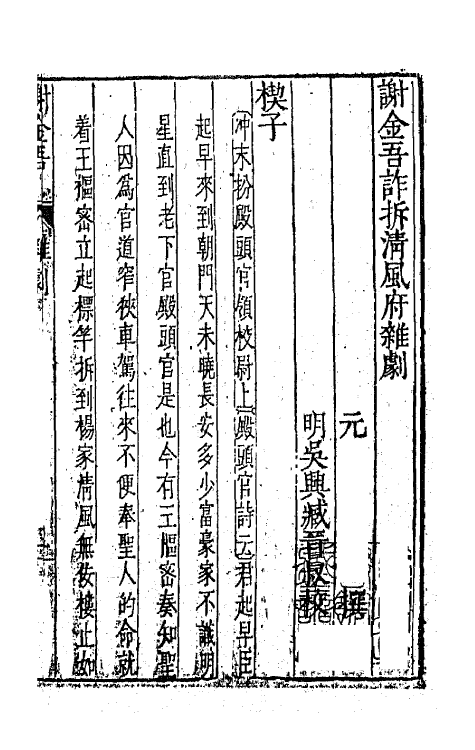 謝金吾詐拆清風府雜劇
元　撰
明吳興臧晉叔校
楔子
冲末扮殿頭官領校尉上殿頭官詩云君起早臣
起早來到朝門天未曉長安多少富豪家不識明
星直到老下官殿頭官是也今有王樞密奏知聖
人因爲官道窄狹車駕往來不便奉聖人的命就
着王樞密立起標竿拆到楊家清風無佞樓止如
謝金吾
雜劇